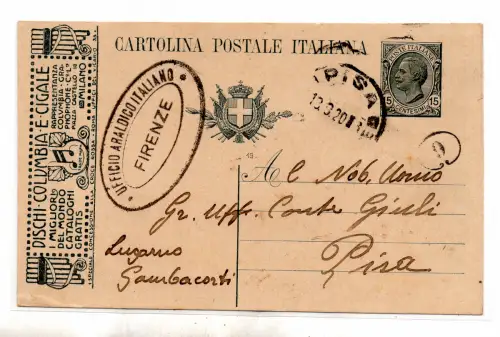 CARTOLINA POSTALE ITALIANA
DISCHI·COLUMBIA·E·CIGALE
I MIGLIORI
DEL MONDO
CATALOGHI
GRATIS
RAPPRESENTANZA
COLUMBIA GRA-
PHOPHONE CY
MILANO
UFFICIO ARALDICO ITALIANO
FIRENZE
PISA
13.9.20
POSTE ITALIANE
15 CENTESIMI 15
Al Nob. Uomo
Gr. Uff. Conte Giuli
Lugarno
Gambacorti
Pisa